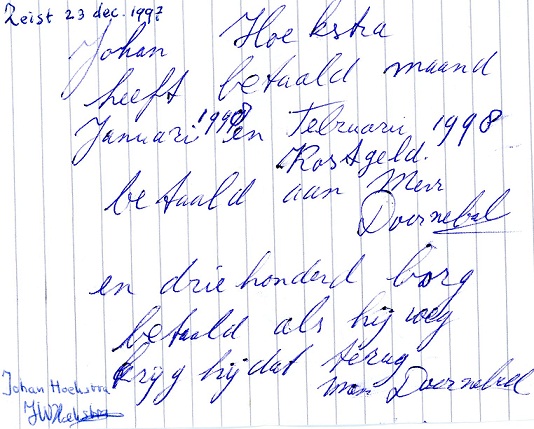 Zeist 23 dec. 1997
Johan Hoekstra
heeft betaald maand
Januari 1998 en Februarii 1998
Kostgeld.
betaald aan Mevr
Doornebal
en driehonderd borg
betaald als hij weg
krijg hij dat terug
Doornebal
Johan Hoekstra
JWHoekstra